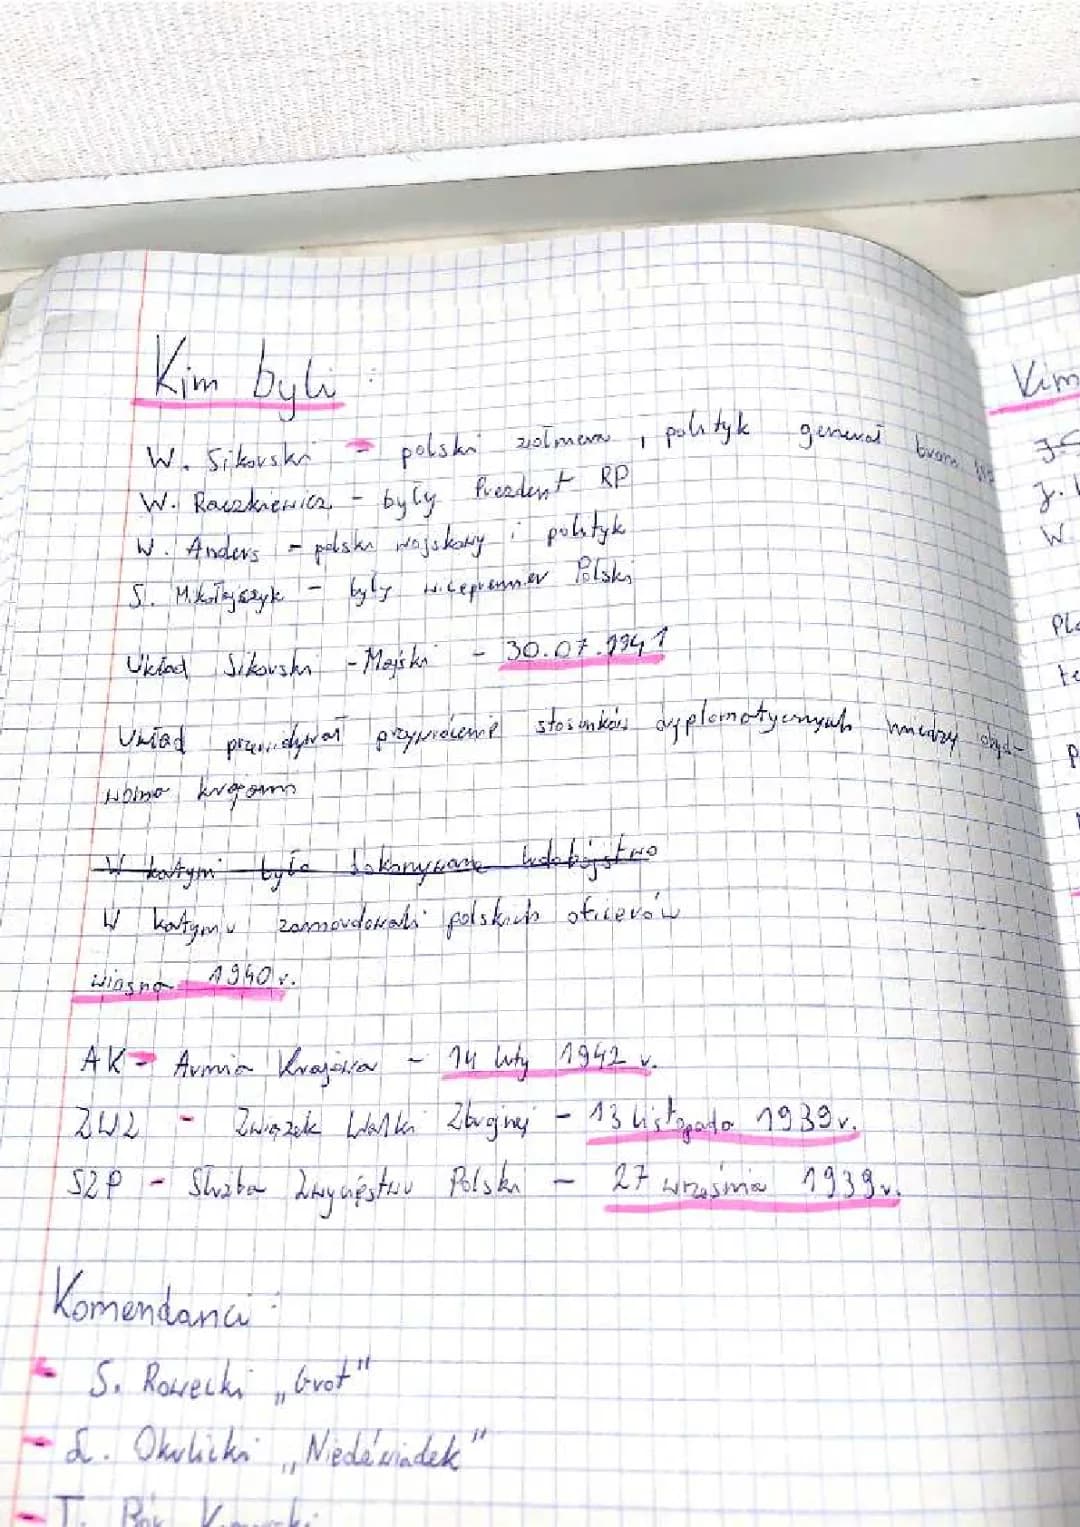 Kim byli:
W. Sikorski - polski żołnierz, polityk generał broni
W. Raczkiewicz - były Prezdent RP
W. Anders - polski wojskowy i polityk
S. Mikołajczyk - były wicepremier Polski
Układ Sikorski - Majski - 30.07.1941
Układ przewidywał przywrócenie stosunków dyplomatycznych między obyd-
woma krajami
W katyni było dokonywane ludobójstwo
W katyniu zamordowali polskich oficerów
wiosna 1940 r.
AK - Armia Krajowa - 14 luty 1942 r.
ZWZ - Związek Walki Zbrojnej - 13 listopada 1939r.
SZP - Służba Zwycięstwu Polski - 27 września 1939r.
Komendanci:
- S. Rowecki „Grot"
- L. Okulicki „Niedźwiadek"
- T. Bór
Kim
J.
W.